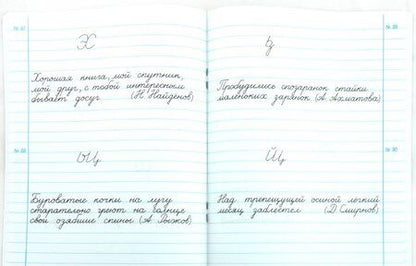 № 87
Х
Хорошая книга, мой спутник,
мой друг, с тобой интересным
бывает досуг (Н Найденов)
№ 88
ыц
Буроватые кочки на лугу
старательно греют на солнце
свои озябшие спины (А Рыжов)
№ 89
Пробудились спозаранок стайки
маленьких зарянок (А Ахматова)
№ 90
йщ
Над трепещущей осиной легкий
месяц заблестел (Д Смирнов)